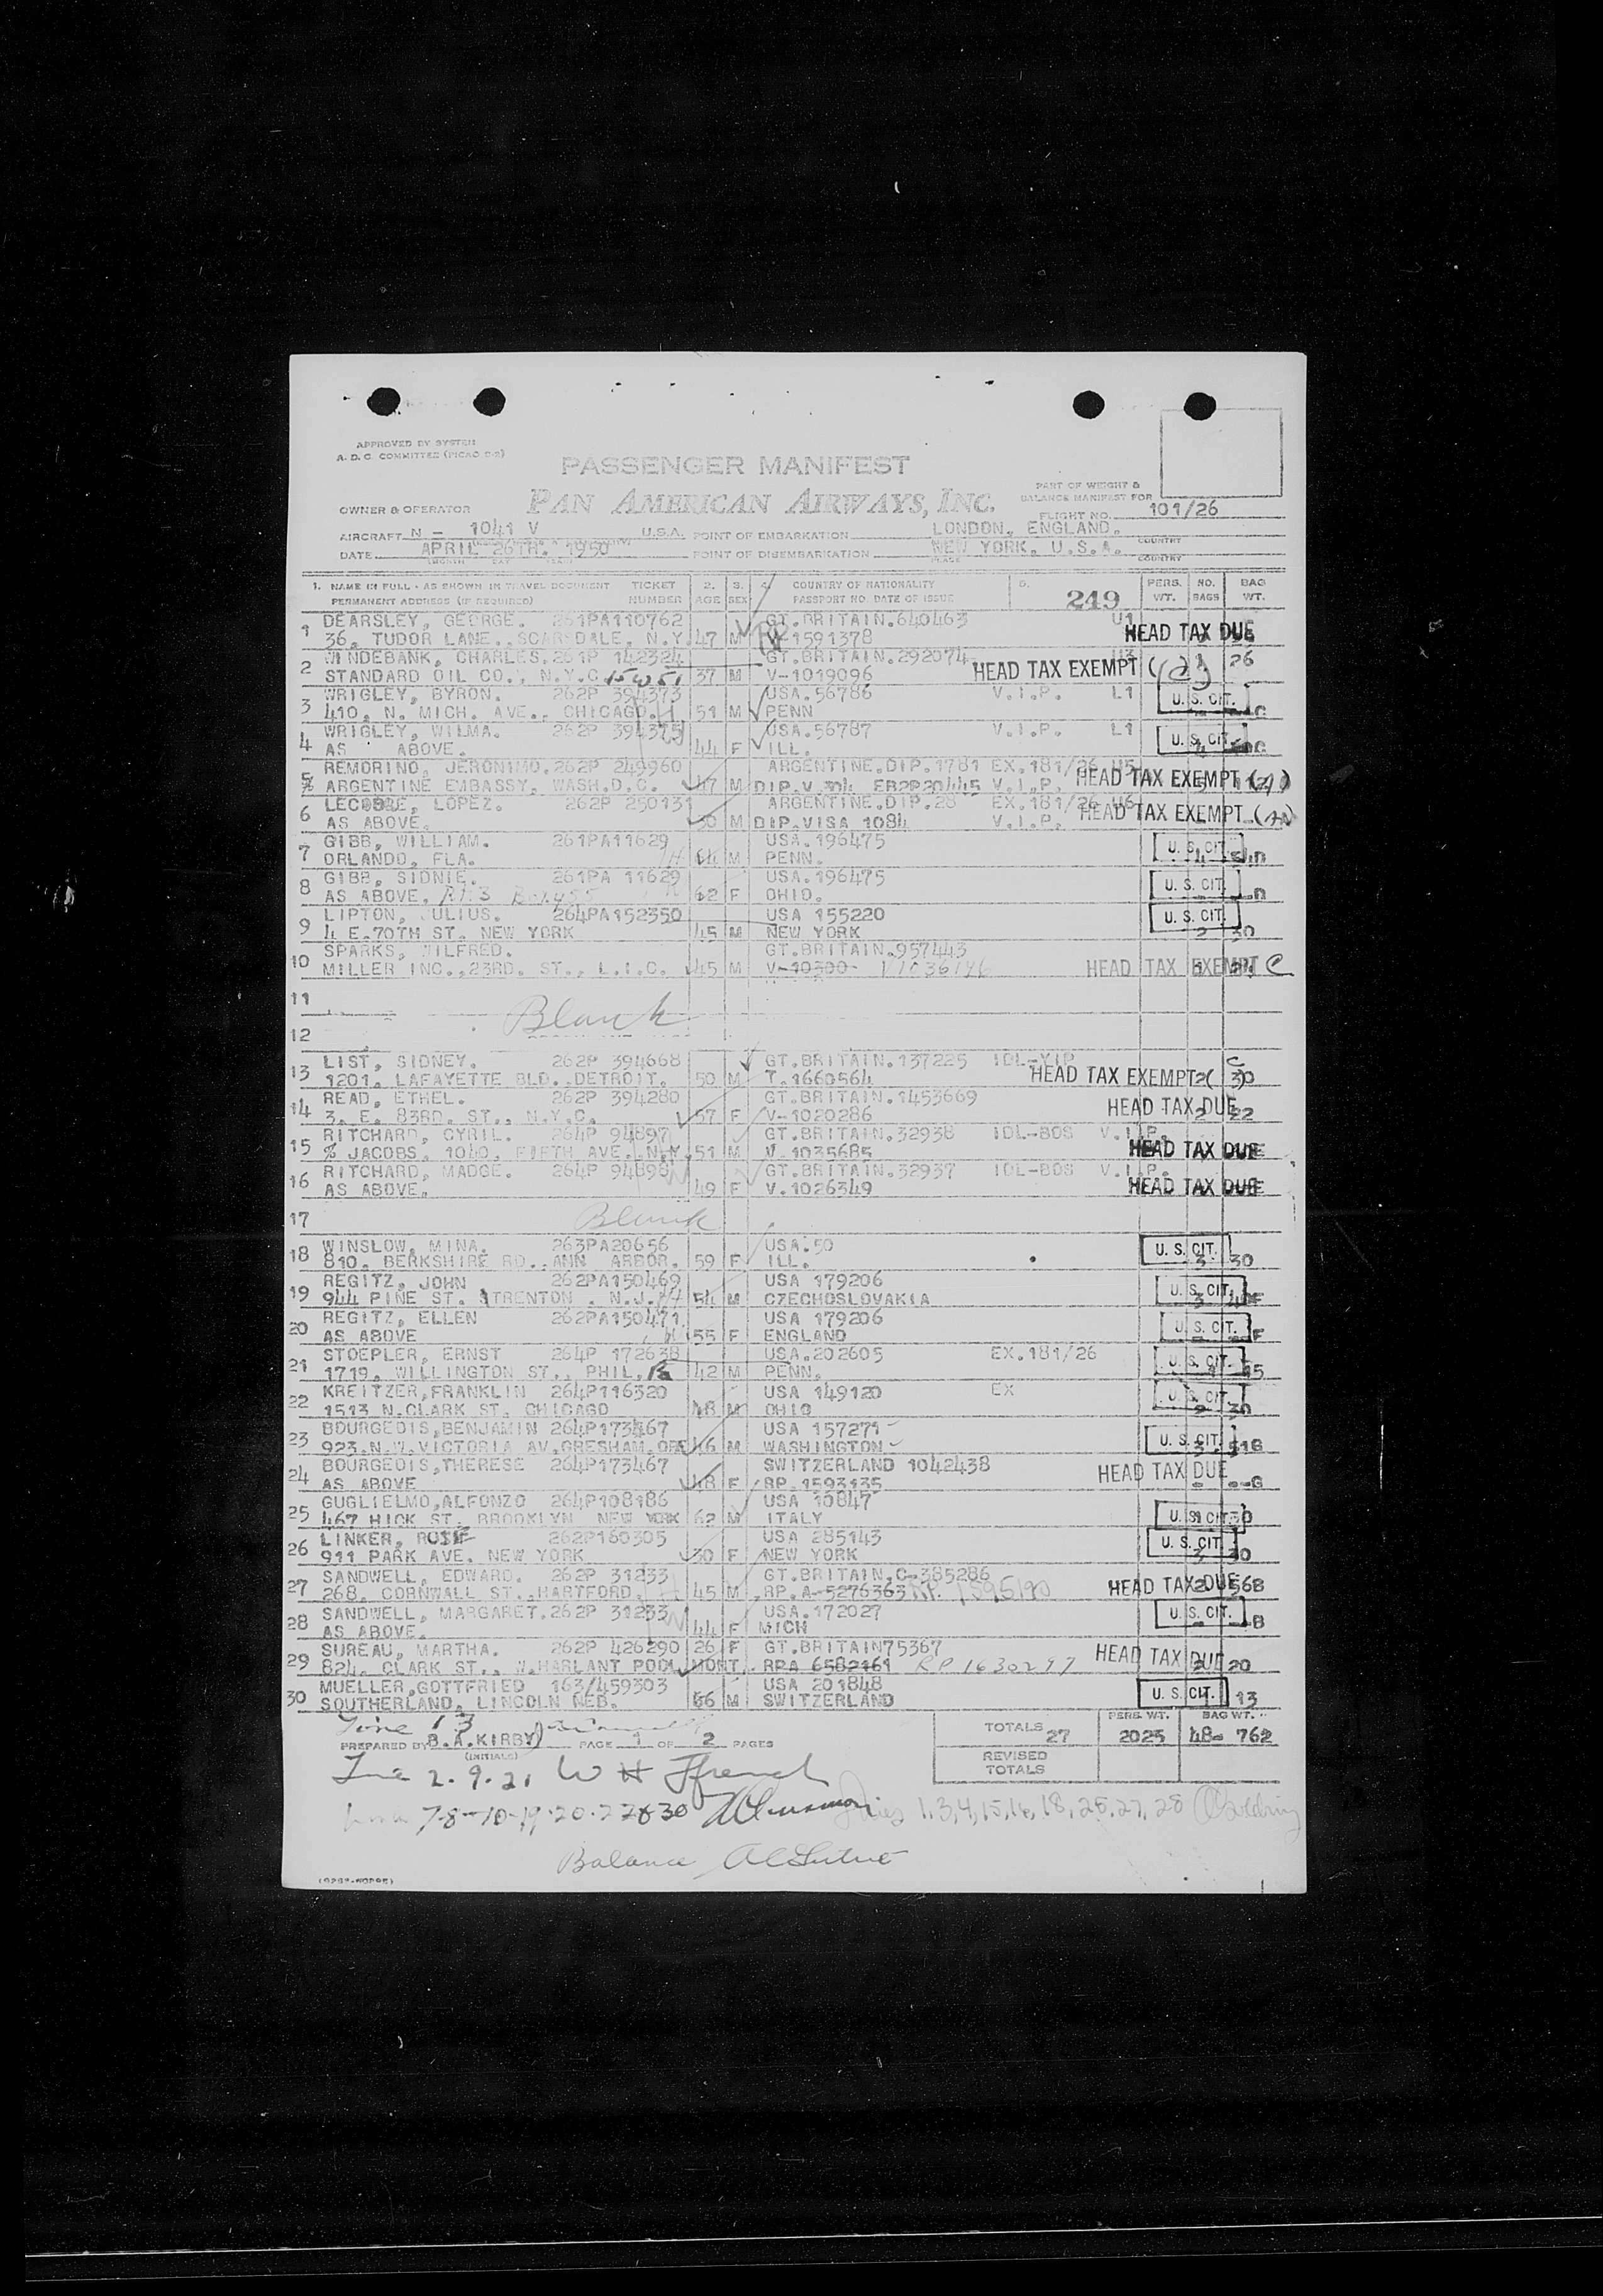 APPROVED BY SYSTEM
A. D. C. COMMITTEE (PICAO D-2)
PASSENGER MANIFEST
PAN AMERICAN AIRWAYS, INC.
PART OF WEIGHT &
BALANCE MANIFEST FOR
OWNER & OPERATOR
FLIGHT NO. 101/26
AIRCRAFT N - 1041 V U.S.A. POINT OF EMBARKATION LONDON, ENGLAND.
DATE APRIL 26TH. 1950 POINT OF DISEMBARKATION NEW YORK. U.S.A.
PLACE COUNTRY
1. NAME IN FULL - AS SHOWN IN TRAVEL DOCUMENT TICKET 2. 3. 4. COUNTRY OF NATIONALITY 5. PERS. NO. BAG
PERMANENT ADDRESS (IF REQUIRED) NUMBER AGE SEX PASSPORT NO. DATE OF ISSUE 249 WT. BAGS WT.
1 DEARSLEY, GEORGE. 261PA110762 GT.BRITAIN.640463 U1
36, TUDOR LANE., SCARSDALE, N.Y. 47 M V-1591378 HEAD TAX DUE
2 WINDEBANK, CHARLES. 261P 142324 GT.BRITAIN.292074 26
STANDARD OIL CO., N.Y.C. 37 M V-1019096 HEAD TAX EXEMPT
3 WRIGLEY, BYRON. 262P 394373 USA.56786 V.I.P. L1
410, N. MICH. AVE., CHICAGO. 51 M PENN U. S. CIT.
4 WRIGLEY, WILMA. 262P 394375 USA.56787 V.I.P. L1
AS ABOVE. 44 F ILL. U. S. CIT.
5 REMORINO, JERONIMO. 262P 249960 ARGENTINE.DIP.1781 EX.181/26 U5
% ARGENTINE EMBASSY. WASH.D.C. 47 M DIP.V. ER2P20445 V.I.P. HEAD TAX EXEMPT
6 LOPEZ. 262P 250131 ARGENTINE.DIP.28 EX.181/26 U6
AS ABOVE. 30 M DIP.VISA 1084 V.I.P. HEAD TAX EXEMPT
7 GIBB, WILLIAM. 261PA11629 USA.196475
ORLANDO, FLA. 64 M PENN. U. S. CIT.
8 GIBB, SIDNIE. 261PA 11629 USA.196475
AS ABOVE. Rt.3 Box 455 62 F OHIO. U. S. CIT.
9 LIPTON, JULIUS. 264PA152350 USA 155220
4 E.70TH ST. NEW YORK 45 M NEW YORK U. S. CIT. 2 30
10 SPARKS, WILFRED. GT.BRITAIN.957443
MILLER INC.,23RD. ST., L.I.C. 45 M V-10300- V1036146 HEAD TAX EXEMPT C
11
Blank
12
13 LIST, SIDNEY. 262P 394668 GT.BRITAIN.137225 IDL-VIP
1201. LAFAYETTE BLD. DETROIT. 50 M T.1660564 HEAD TAX EXEMPT 2 30
14 READ, ETHEL. 262P 394280 GT.BRITAIN.1453669
3. E. 83RD. ST., N.Y.C. 57 F V-1020286 HEAD TAX DUE 2 22
15 RITCHARD, CYRIL. 264P 94897 GT.BRITAIN.32938 IDL-BOS V.I.P.
% JACOBS. 1040, FIFTH AVE. N.Y. 51 M V.1035685 HEAD TAX DUE
16 RITCHARD, MADGE. 264P 94898 GT.BRITAIN.32937 IDL-BOS V.I.P.
AS ABOVE. 49 F V.1026349 HEAD TAX DUE
17 Blank
18 WINSLOW, MINA. 263PA20656 USA.50
810. BERKSHIRE RD., ANN ARBOR. 59 F ILL. U. S. CIT. 3 30
19 REGITZ, JOHN 262PA150469 USA 179206
944 PINE ST. TRENTON . N.J. 54 M CZECHOSLOVAKIA U. S. CIT.
20 REGITZ, ELLEN 262PA150471 USA 179206
AS ABOVE 55 F ENGLAND U. S. CIT. F
21 STOEPLER, ERNST 264P 172638 USA.202605 EX.181/26
1719. WILLINGTON ST., PHIL. Pa 42 M PENN. U. S. CIT.
22 KREITZER,FRANKLIN 264P116320 USA 149120 EX
1513 N.CLARK ST. CHICAGO 48 M OHIO U. S. CIT. 2 30
23 BOURGEOIS,BENJAMIN 264P173467 USA 157271
923.N.W.VICTORIA AV.GRESHAM.ORE 46 M WASHINGTON U. S. CIT.
24 BOURGEOIS,THERESE 264P173467 SWITZERLAND 1042438
AS ABOVE 48 F RP.1593135 HEAD TAX DUE --G
25 GUGLIELMO,ALFONZO 264P108186 USA 10847
467 HICK ST. BROOKLYN NEW YORK 62 M ITALY U. S. CIT.
26 LINKER, ROSE 262P160305 USA 285143
911 PARK AVE. NEW YORK 30 F NEW YORK U. S. CIT.
27 SANDWELL, EDWARD. 262P 31233 GT.BRITAIN.C-385286
268. CORNWALL ST.,HARTFORD. 45 M RP.A-5276363 RP. 1595190 HEAD TAX DUE
28 SANDWELL, MARGARET. 262P 31233 USA.172027
AS ABOVE. 44 F MICH U. S. CIT. B
29 SUREAU, MARTHA. 262P 426290 26 F GT.BRITAIN75367
824. CLARK ST., MONT. RPA 6582161 RP 1630297 HEAD TAX DUE 20
30 MUELLER,GOTTFRIED 163/459303 USA 201848
SOUTHERLAND. LINCOLN NEB. 66 M SWITZERLAND U. S. CIT. 13
PREPARED BY B.A.KIRBY PAGE 1 OF 2 PAGES
(INITIALS)
TOTALS 27 PERS. WT. 2025 BAG WT. 48- 762
REVISED
TOTALS
2.9.21 W H Ffrench
7-8-10-19-20-22&30
Lines 1,3,4,15,16,18,26,27,28
Balance